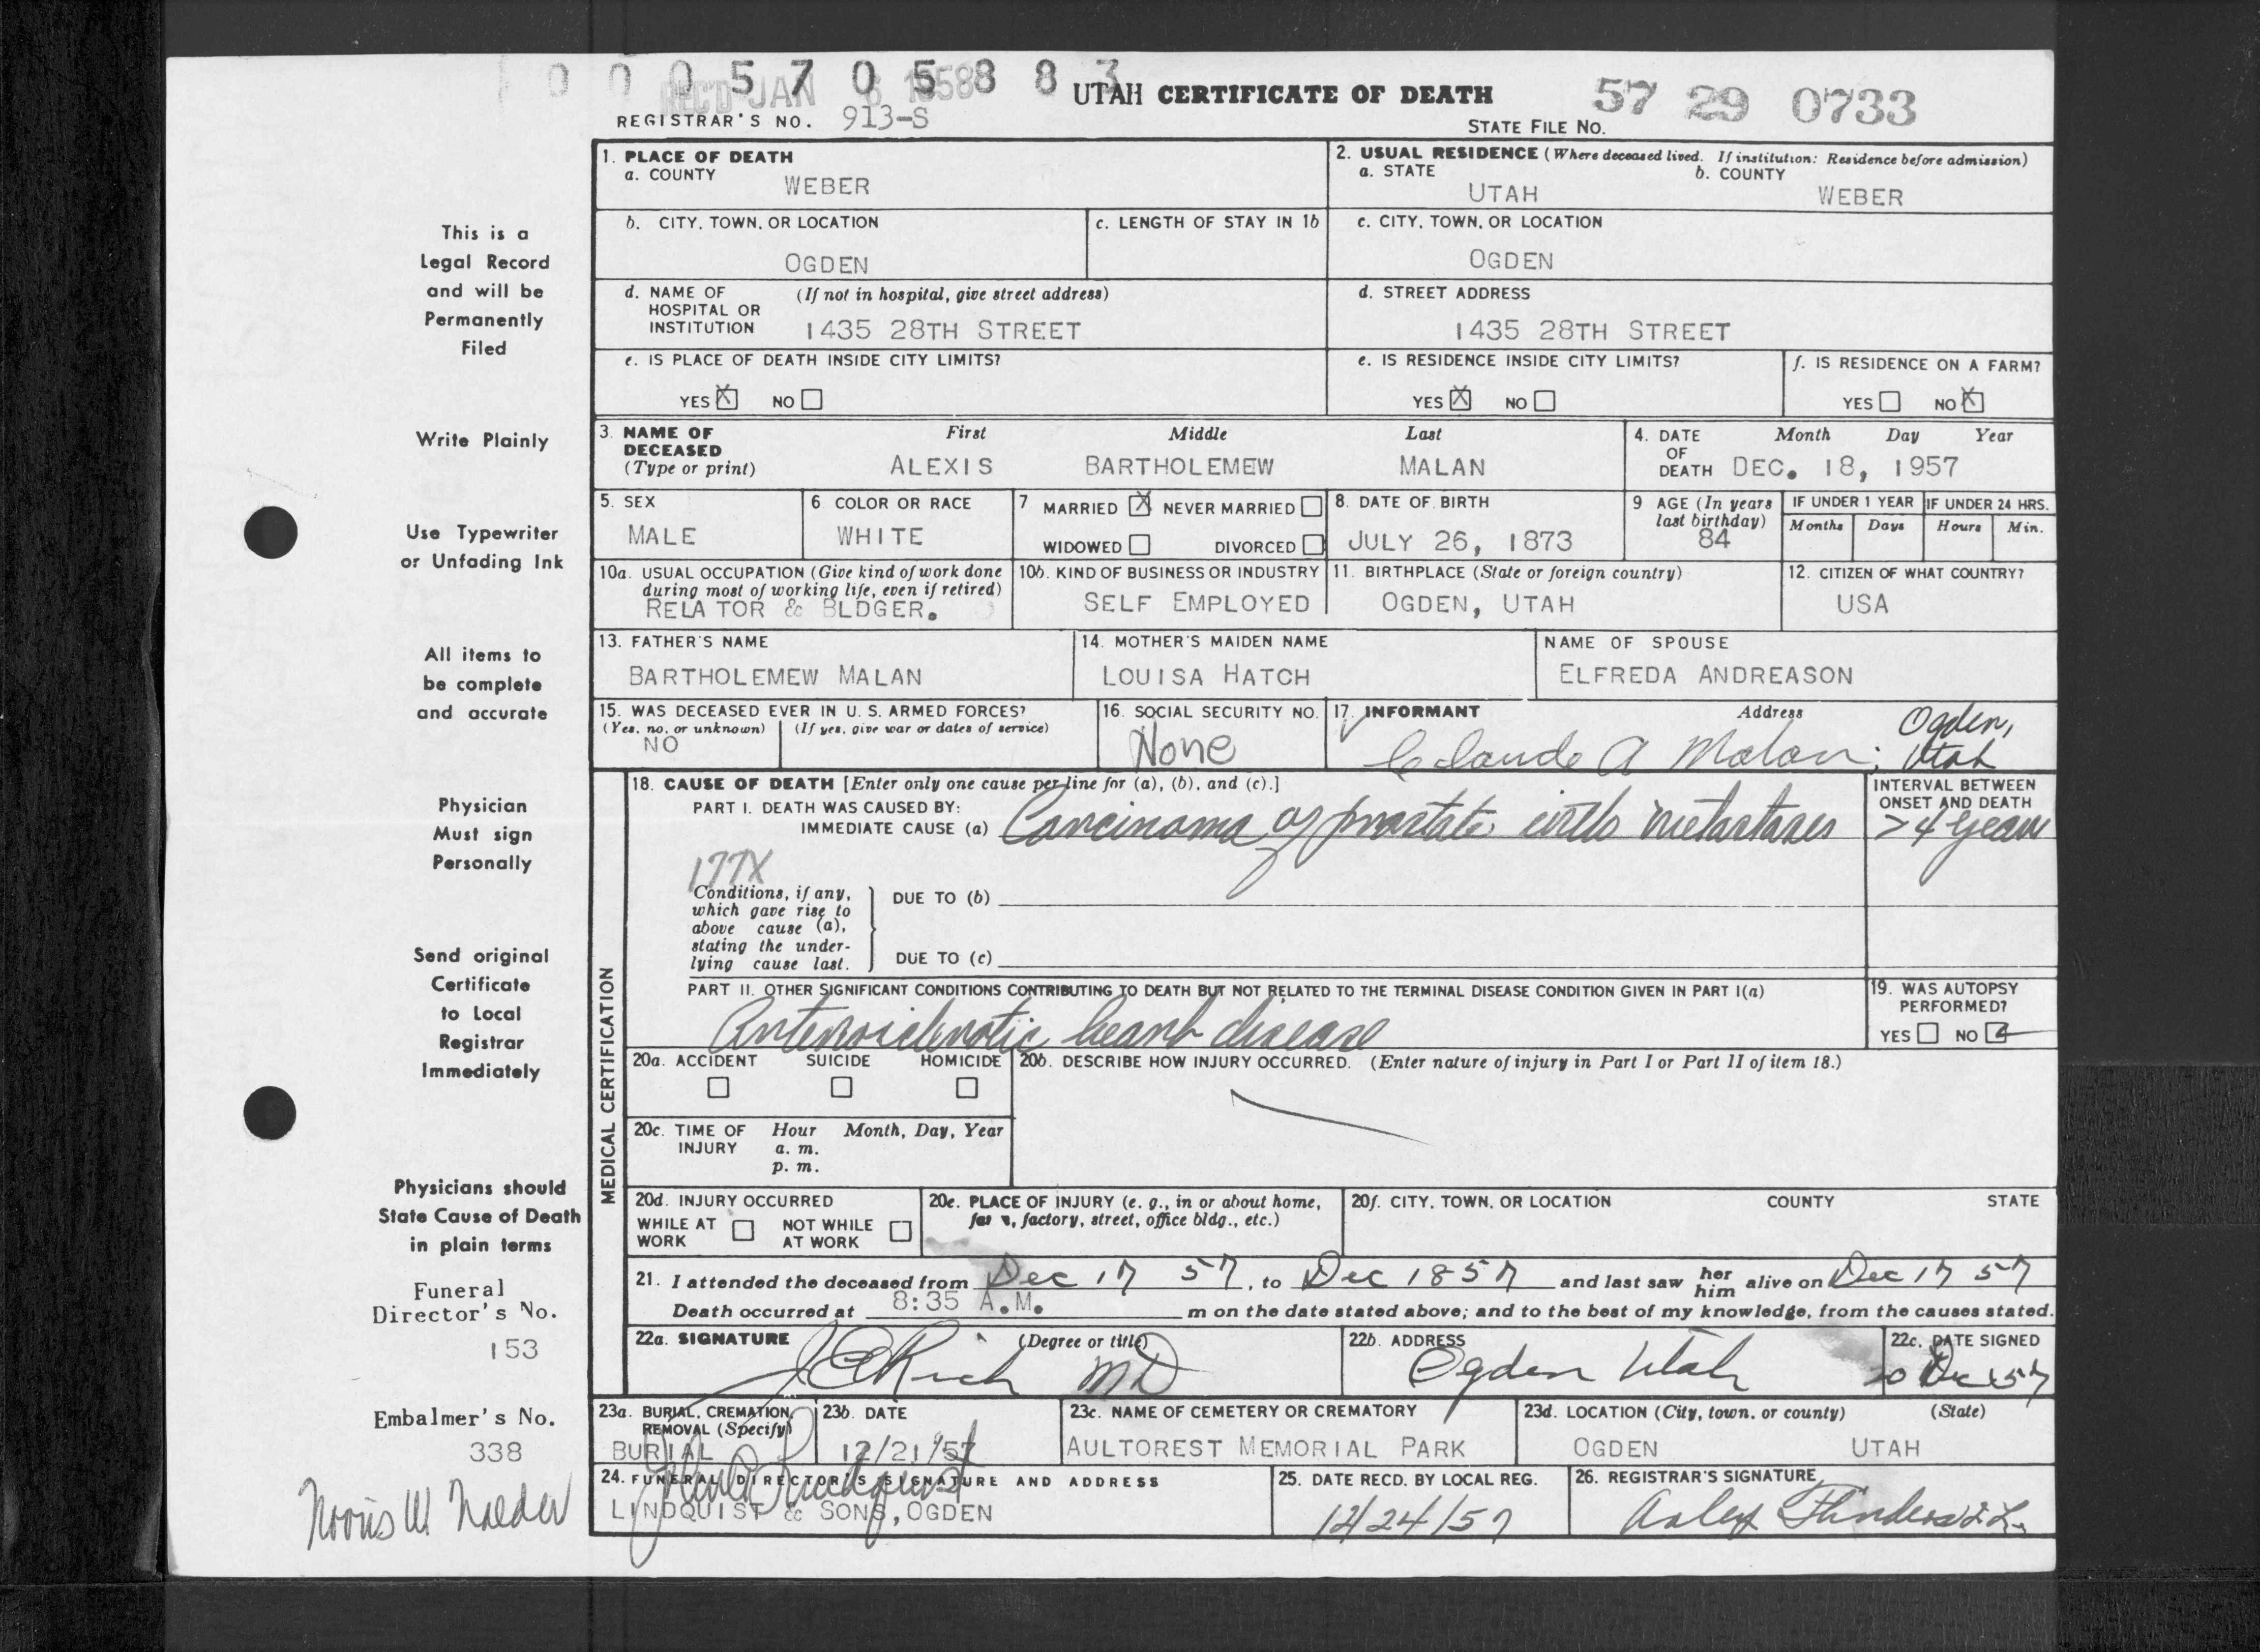 0 0 0 5 7 0 5 8 8 3
REC'D JAN 6 1958
UTAH CERTIFICATE OF DEATH
57 29 0733
REGISTRAR'S NO. 913-S
STATE FILE NO.
This is a
Legal Record
and will be
Permanently
Filed
Write Plainly
Use Typewriter
or Unfading Ink
All items to
be complete
and accurate
Physician
Must sign
Personally
Send original
Certificate
to Local
Registrar
Immediately
Physicians should
State Cause of Death
in plain terms
Funeral
Director's No.
153
Embalmer's No.
338
1. PLACE OF DEATH
a. COUNTY WEBER
2. USUAL RESIDENCE (Where deceased lived. If institution: Residence before admission)
a. STATE UTAH b. COUNTY WEBER
b. CITY, TOWN, OR LOCATION OGDEN
c. LENGTH OF STAY IN 1b
c. CITY, TOWN, OR LOCATION OGDEN
d. NAME OF (If not in hospital, give street address)
HOSPITAL OR
INSTITUTION 1435 28TH STREET
d. STREET ADDRESS
1435 28TH STREET
e. IS PLACE OF DEATH INSIDE CITY LIMITS?
YES X NO
e. IS RESIDENCE INSIDE CITY LIMITS?
YES X NO
f. IS RESIDENCE ON A FARM?
YES NO X
3. NAME OF DECEASED (Type or print)
First Middle Last
ALEXIS BARTHOLEMEW MALAN
4. DATE OF DEATH
Month Day Year
DEC. 18, 1957
5. SEX
MALE
6 COLOR OR RACE
WHITE
7 MARRIED X NEVER MARRIED
WIDOWED DIVORCED
8. DATE OF BIRTH
JULY 26, 1873
9 AGE (In years
last birthday)
84
IF UNDER 1 YEAR
Months Days
IF UNDER 24 HRS.
Hours Min.
10a. USUAL OCCUPATION (Give kind of work done
during most of working life, even if retired)
RELATOR & BLDGER.
10b. KIND OF BUSINESS OR INDUSTRY
SELF EMPLOYED
11. BIRTHPLACE (State or foreign country)
OGDEN, UTAH
12. CITIZEN OF WHAT COUNTRY?
USA
13. FATHER'S NAME
BARTHOLEMEW MALAN
14. MOTHER'S MAIDEN NAME
LOUISA HATCH
NAME OF SPOUSE
ELFREDA ANDREASON
15. WAS DECEASED EVER IN U. S. ARMED FORCES?
(Yes, no, or unknown) (If yes, give war or dates of service)
NO
16. SOCIAL SECURITY NO.
None
17. INFORMANT Address
Claude A Malan; Ogden,
Utah
MEDICAL CERTIFICATION
18. CAUSE OF DEATH [Enter only one cause per line for (a), (b), and (c).]
PART I. DEATH WAS CAUSED BY:
IMMEDIATE CAUSE (a) Carcinoma of prostate with metastases
INTERVAL BETWEEN
ONSET AND DEATH
> 4 years
177X
Conditions, if any,
which gave rise to
above cause (a),
stating the under-
lying cause last.
DUE TO (b)
DUE TO (c)
PART II. OTHER SIGNIFICANT CONDITIONS CONTRIBUTING TO DEATH BUT NOT RELATED TO THE TERMINAL DISEASE CONDITION GIVEN IN PART I(a)
Arteriosclerotic heart disease
19. WAS AUTOPSY
PERFORMED?
YES NO
20a. ACCIDENT SUICIDE HOMICIDE
20b. DESCRIBE HOW INJURY OCCURRED. (Enter nature of injury in Part I or Part II of item 18.)
20c. TIME OF INJURY
Hour Month, Day, Year
a. m.
p. m.
20d. INJURY OCCURRED
WHILE AT WORK NOT WHILE AT WORK
20e. PLACE OF INJURY (e. g., in or about home,
farm, factory, street, office bldg., etc.)
20f. CITY, TOWN, OR LOCATION COUNTY STATE
21. I attended the deceased from Dec 17 57, to Dec 18 57 and last saw her him alive on Dec 17 57
Death occurred at 8:35 A.M. m on the date stated above; and to the best of my knowledge, from the causes stated.
22a. SIGNATURE (Degree or title)
J E Rich MD
22b. ADDRESS
Ogden Utah
22c. DATE SIGNED
20 Dec 57
23a. BURIAL, CREMATION,
REMOVAL (Specify)
BURIAL
23b. DATE
12/21/57
23c. NAME OF CEMETERY OR CREMATORY
AULTOREST MEMORIAL PARK
23d. LOCATION (City, town, or county) (State)
OGDEN UTAH
24. FUNERAL DIRECTOR'S SIGNATURE AND ADDRESS
LINDQUIST & SONS, OGDEN
25. DATE RECD. BY LOCAL REG.
12/24/57
26. REGISTRAR'S SIGNATURE